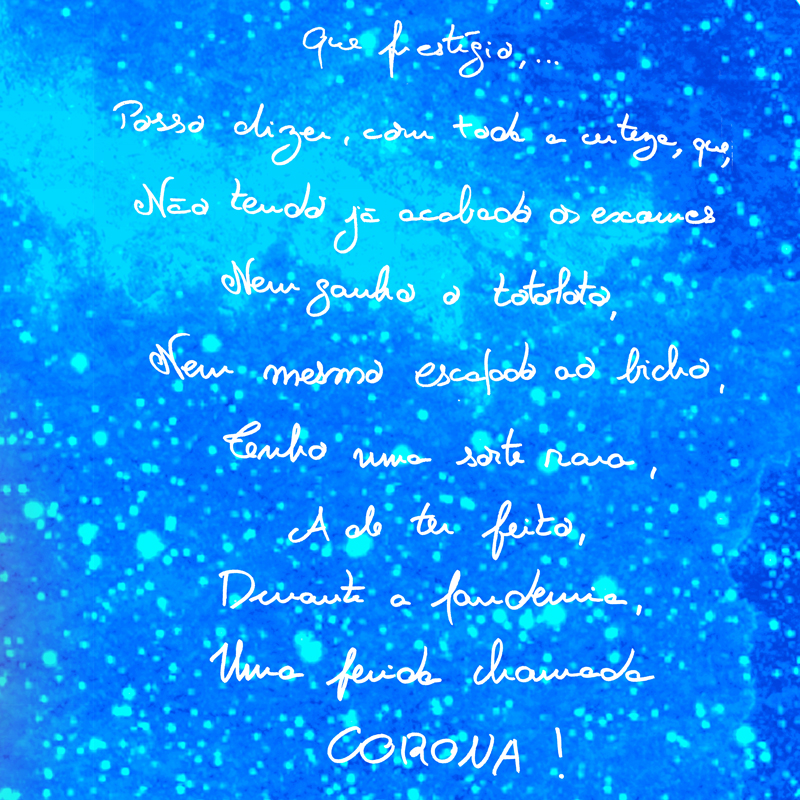 Que prestígio,...
Posso dizer, com toda a certeza, que,
Não tendo já acabado os exames
Nem ganho o totoloto,
Nem mesmo escapado ao bicho,
Tenho uma sorte rara,
A de ter feito,
Durante a pandemia,
Uma ferida chamada
CORONA !